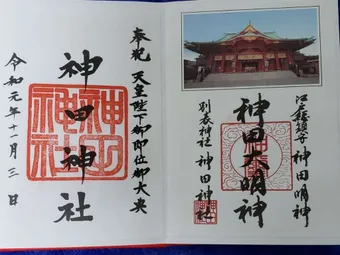 江戸総鎮守 神田明神
神田大明神
別表神社 神田神社
奉祝 天皇陛下御即位御大典
神田神社
令和元年十一月三日